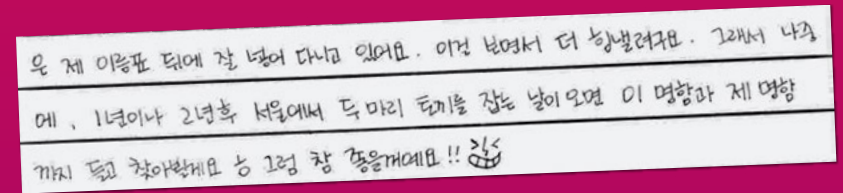 은 제 이름표 뒤에 잘 넣어 다니고 있어요. 이걸 보면서 더 힘낼려구요. 그래서 나중
에, 1년이나 2년후 서울에서 두마리 토끼를 잡는 날이 오면 이 명함과 제 명함
까지 들고 찾아뵐게요 ㅎ 그럼 참 좋을꺼예요!!